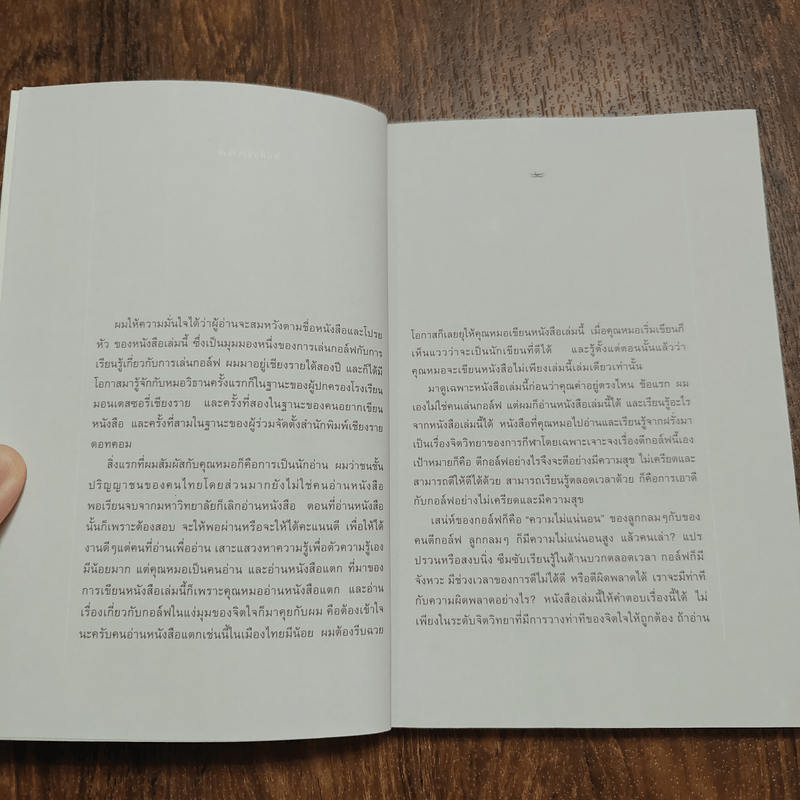 ผมให้ความมั่นใจได้ว่าผู้อ่านจะสมหวังตามชื่อหนังสือและโปรย
หัว ของหนังสือเล่มนี้ ซึ่งเป็นมุมมองหนึ่งของการเล่นกอล์ฟกับการ
เรียนรู้เกี่ยวกับการเล่นกอล์ฟ ผมมาอยู่เชียงรายได้สองปี และก็ได้มี
โอกาสมารู้จักกับหมอวิธานครั้งแรกก็ในฐานะของผู้ปกครองโรงเรียน
มอนเตสซอรี่เชียงราย และครั้งที่สองในฐานะของคนอยากเขียน
หนังสือ และครั้งที่สามในฐานะของผู้ร่วมจัดตั้งสำนักพิมพ์เชียงราย
ดอทคอม
สิ่งแรกที่ผมสัมผัสกับคุณหมอก็คือการเป็นนักอ่าน ผมว่าชนชั้น
ปริญญาชนของคนไทยโดยส่วนมากยังไม่ใช่คนอ่านหนังสือ
พอเรียนจบจากมหาวิทาลัยก็เลิกอ่านหนังสือ ตอนที่อ่านหนังสือ
นั้นก็เพราะต้องสอบ จะให้พอผ่านหรือจะให้ได้คะแนนดี เพื่อให้ได้
งานดีๆแต่คนที่อ่านเพื่ออ่าน เสาะแสวงหาความรู้เพื่อตัวความรู้เอง
มีน้อยมาก แต่คุณหมอเป็นคนอ่าน และอ่านหนังสือแตก ที่มาของ
การเขียนหนังสือเล่มนี้ก็เพราะคุณหมออ่านหนังสือแตก และอ่าน
เรื่องเกี่ยวกับกอล์ฟในแง่มุมของจิตใจก็มาคุยกับผม คือต้องเข้าใจ
นะครับคนอ่านหนังสือแตกเช่นนี้ในเมืองไทยมีน้อย ผมต้องรีบฉวย
โอกาสก็เลยยุให้คุณหมอเขียนหนังสือเล่มนี้ เมื่อคุณหมอเริ่มเขียนก็
เห็นแววว่าจะเป็นนักเขียนที่ดีได้ และรู้ตั้งแต่ตอนนั้นแล้วว่า
คุณหมอจะเขียนหนังสือไม่เพียงเล่มนี้เล่มเดียวเท่านั้น
มาดูเฉพาะหนังสือเล่มนี้ก่อนว่าคุณค่าอยู่ตรงไหน ข้อแรก ผม
เองไม่ใช่คนเล่นกอล์ฟ แต่ผมก็อ่านหนังสือเล่มนี้ได้ และเรียนรู้อะไร
จากหนังสือเล่มนี้ได้ หนังสือที่คุณหมอไปอ่านและเรียนรู้จากฝรั่งมา
เป็นเรื่องจิตวิทยาของการกีฬาโดยเฉพาะเจาะจงเรื่องตีกอล์ฟนี้เอง
เป้าหมายก็คือ ตีกอล์ฟอย่างไรจึงจะตีอย่างมีความสุข ไม่เครียดและ
สามารถตีให้ดีได้ด้วย สามารถเรียนรู้ตลอดเวลาด้วย ก็คือการเอาดี
กับกอล์ฟอย่างไม่เครียดและมีความสุข
เสน่ห์ของกอล์ฟก็คือ “ความไม่แน่นอน” ของลูกกลมๆกับของ
คนตีกอล์ฟ ลูกกลมๆ ก็มีความไม่แน่นอนสูง แล้วคนเล่า? แปร
ปรวนหรือสงบนิ่ง ซึมซับเรียนรู้ในด้านบวกตลอดเวลา กอล์ฟก็มี
จังหวะ มีช่วงเวลาของการตีไม่ได้ดี หรือตีผิดพลาดได้ เราจะมีท่าที
กับความผิดพลาดอย่างไร? หนังสือเล่มนี้ให้คำตอบเรื่องนี้ได้ ไม่
เพียงในระดับจิตวิทยาที่มีการวางท่าทีของจิตใจให้ถูกต้อง ถ้าอ่าน